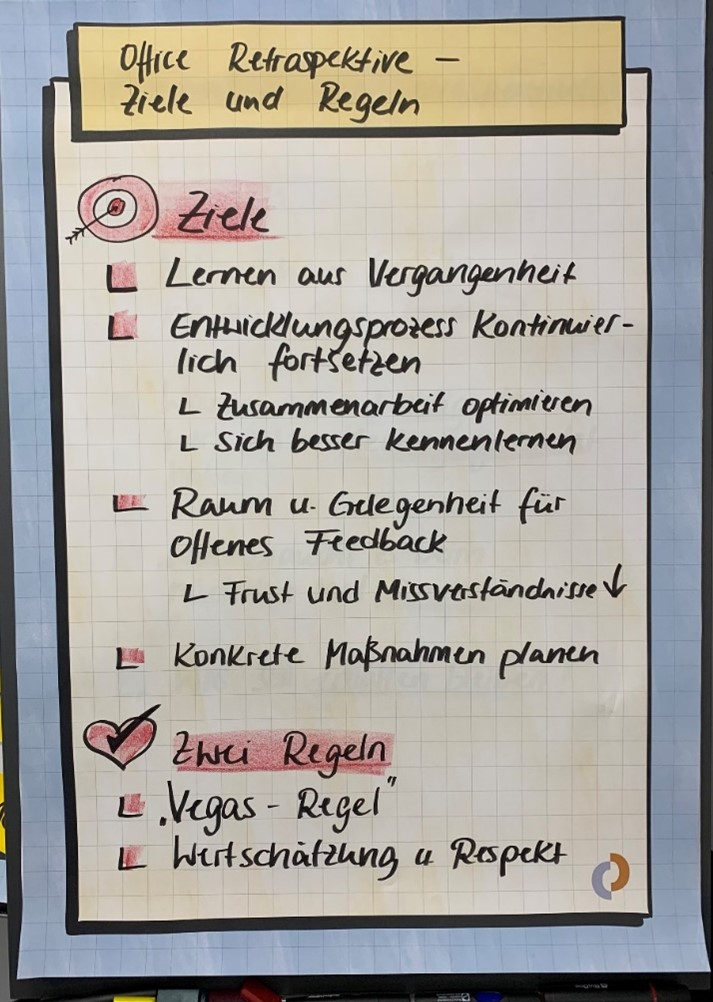 Office Retraspektive –
Ziele und Regeln
Ziele
Lernen aus Vergangenheit
Entwicklungsprozess Kontinuier-
lich fortsetzen
Zusammenarbeit optimieren
Sich besser kennenlernen
Raum u. Gelegenheit für
Offenes Feedback
Frust und Missverständnisse ↓
Konkrete Maßnahmen planen
Zwei Regeln
„Vegas - Regel"
Wertschätzung u Respekt